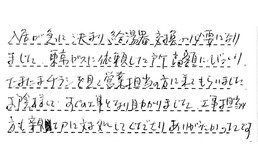 入居が急に決まり、給湯器交換が必要になり
ました。東京ガスに依頼した所、高額にしばらく
たまたまチラシを見て営業担当の方に来てもらいました
お陰様ですぐの工事となり助かりました。工事担当の
方も親切丁寧に対応してくださりありがたかったです